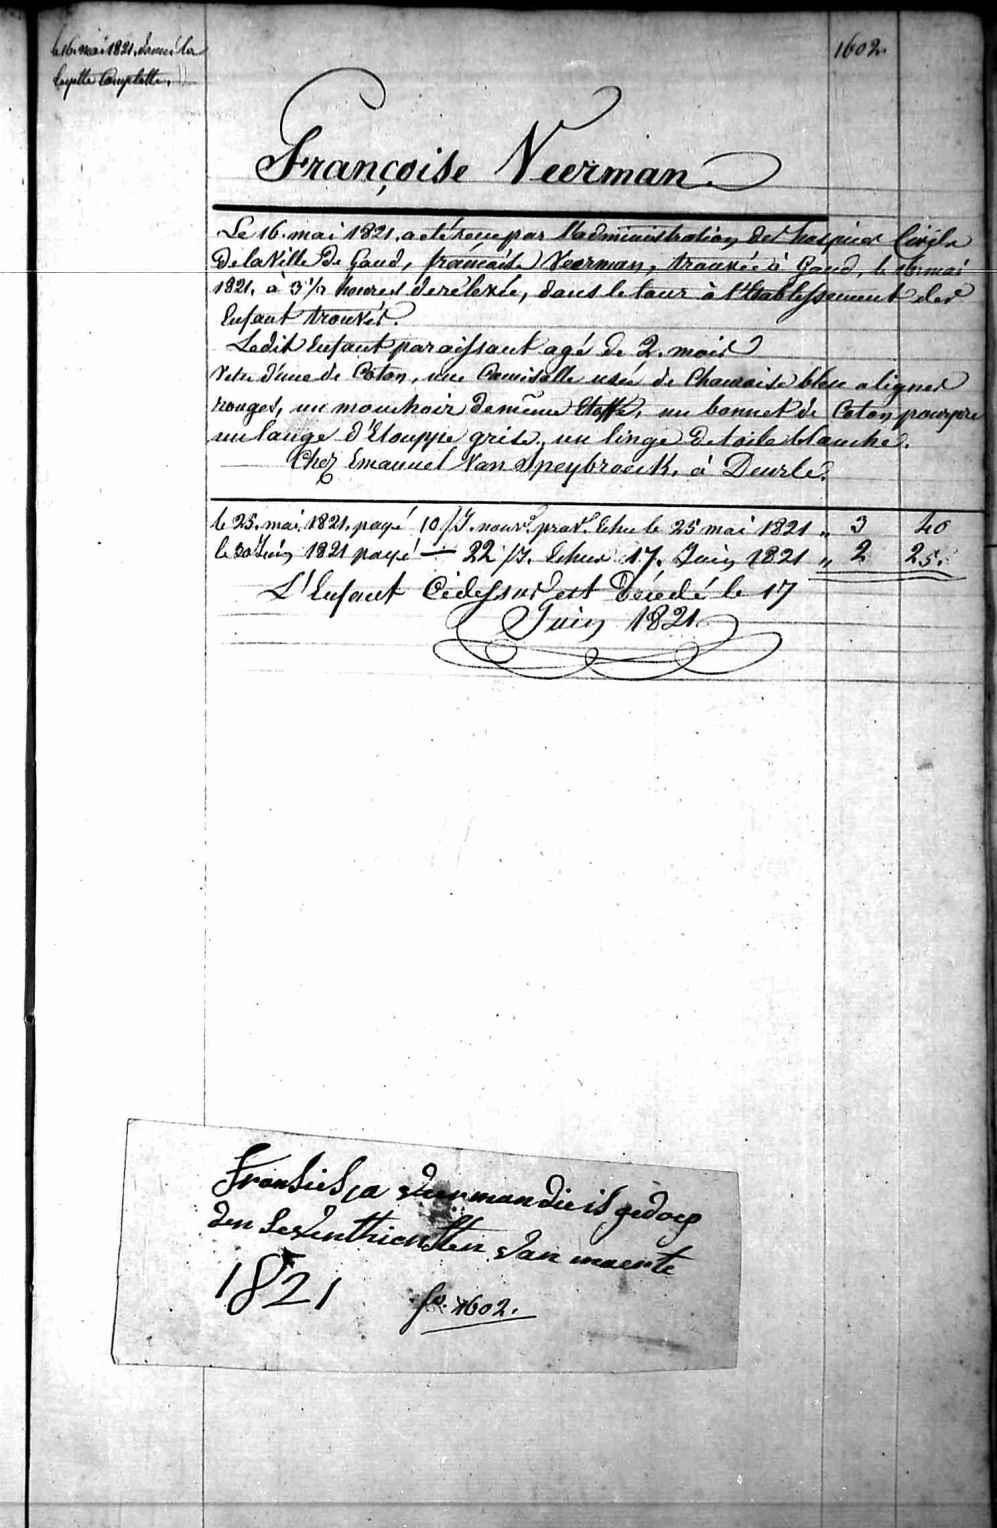 le 16. mai 1821. donné la
layette Complette.
1602.
Françoise Veerman.
Le 16. mai 1821. a eté reçue par l'administration des hospices Civils
de la Ville de Gand, françoise Veerman, trouvée à Gand, le 16. mai
1821. à 3 1/2 heures de rélevée, dans le tour à l'Etablissement des
Enfant trouvés.
Ledit Enfant paraissant agé de 2. mois
Vetu d'une de Coton, une Camisolle usée de bleu a lignes
rouges, un mouchoir de même Etoffe, un bonnet de Coton pourpre
un lange d'Etouppe grise, un linge de toile blanche.
Chez Emanuel Van Speybroeck, à Deurle.
le 25. mai 1821. payé 10/J. nouv. prov. Echu le 25 mai 1821 „ 3 40
le 30 Juin 1821 payé — 22/J. Echus 17. Juin 1821 „ 2 25.
L'Enfant Cidessus est Décédé le 17
Juin 1821.
fransies ja veerman die is gedoep
den seventhiensten van maerte
1821 fo. 1602.